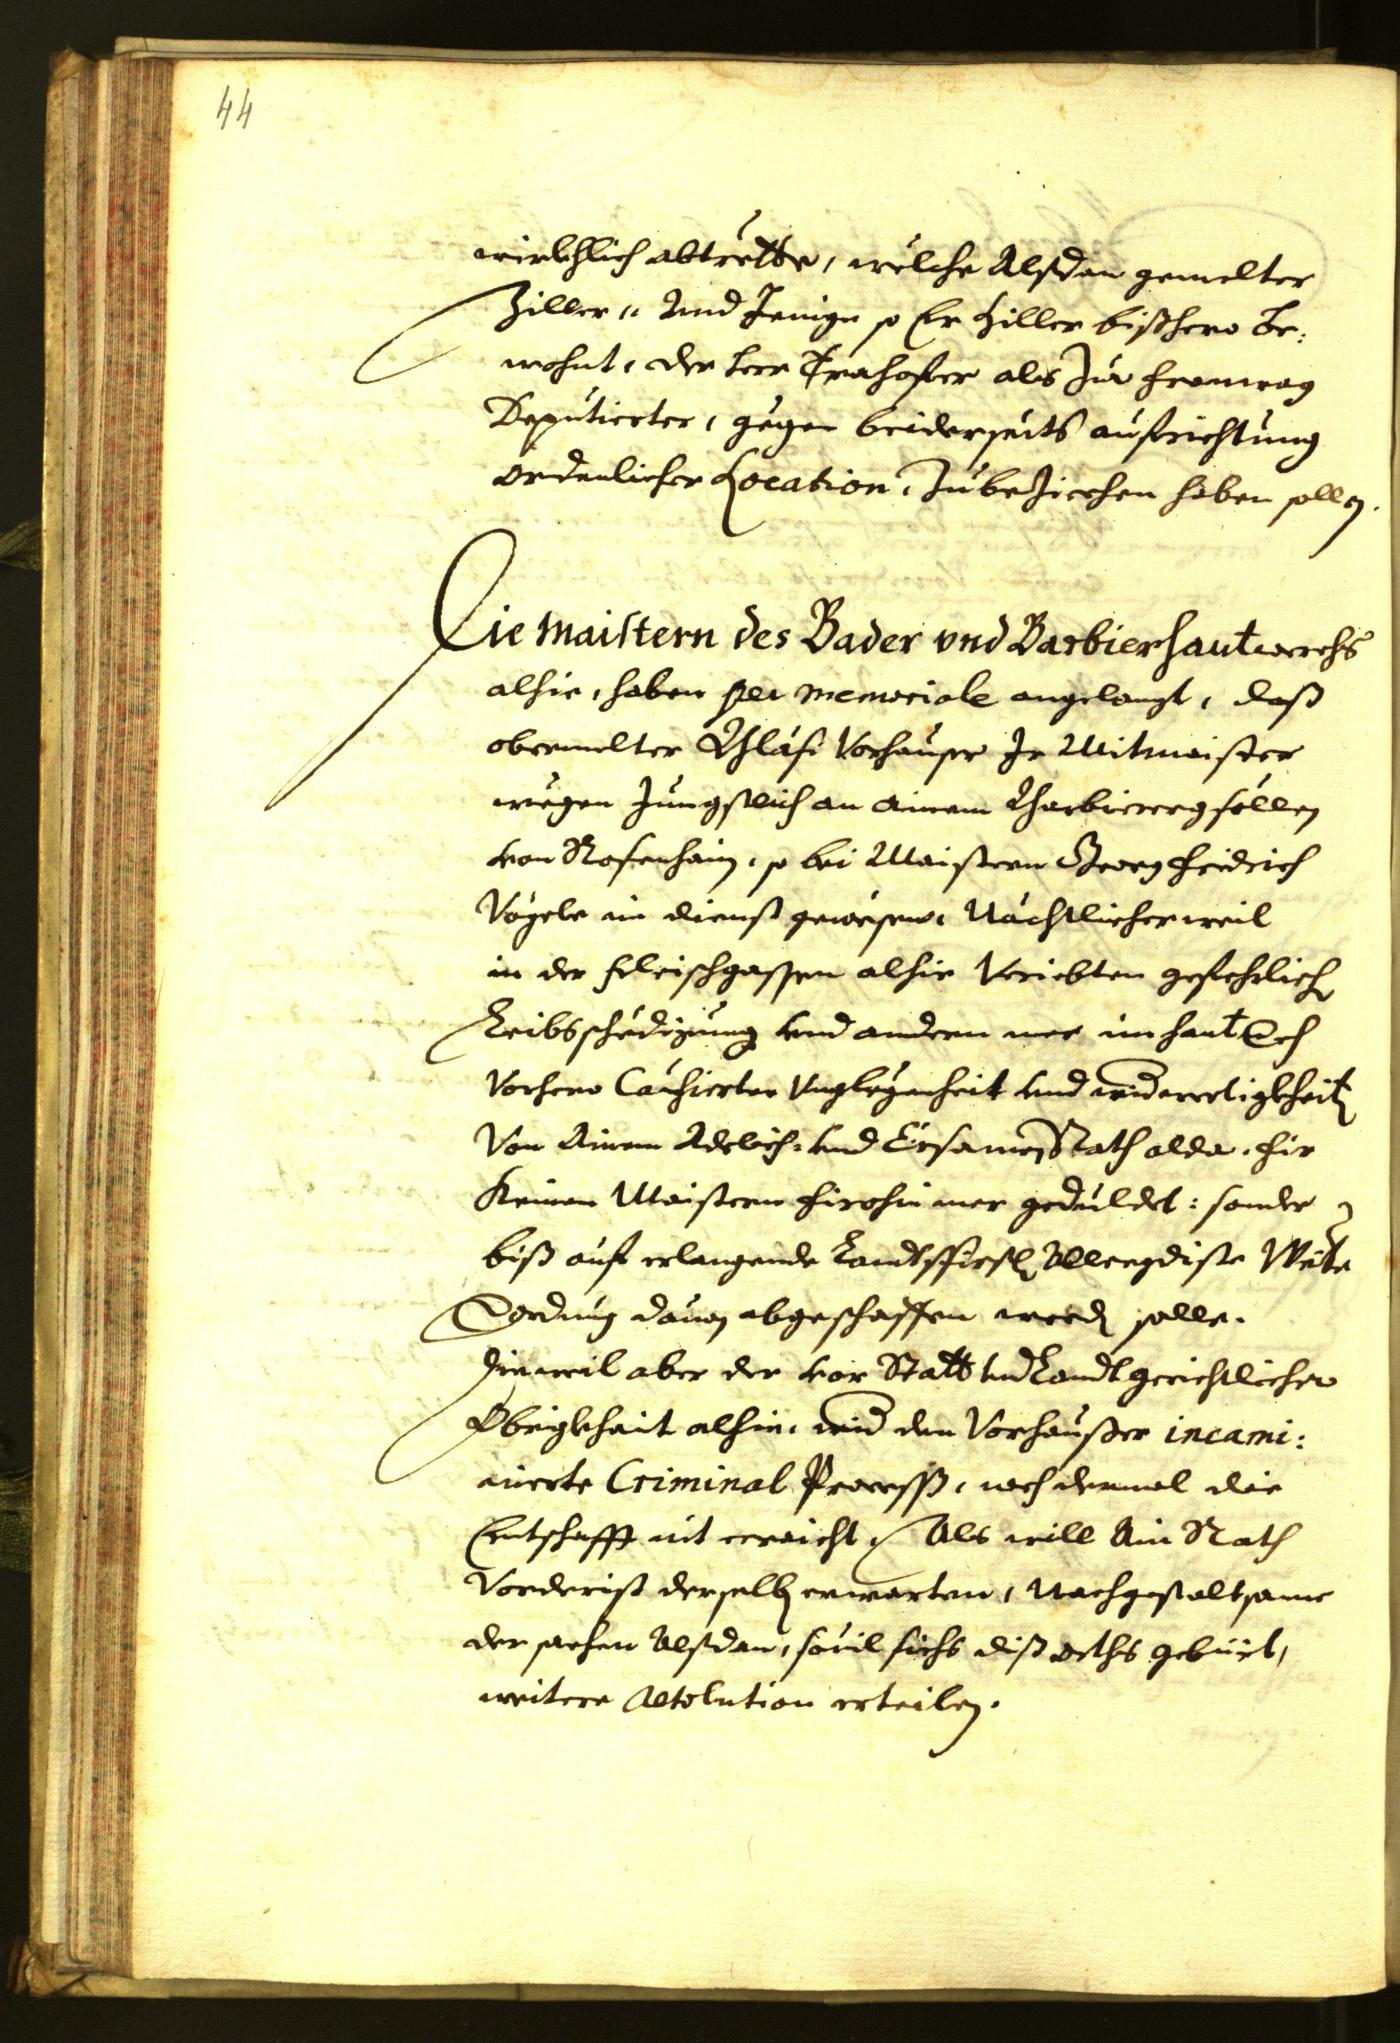 44
wirkhlich abtrette, welche Alßdan gemelter
Ziller, Und Jenige so Er Hiller bißhero be:
wohnt, der herr Trahofer als zur fronwag
Deputierter, gegen beiderseits aufrichtung
ordenlicher Location, zubeziechen haben solle.
Die Maistern des Bader vnd Barbierhantwerchs
alhie, haben per memoriale angelangt, daß
obermelter Bläsi Vorhauser Ir Mitmaister
wegen Jungstlich an ainem Barbierergsöllen
von Rosenhaim, so bei Maistern Georg Fridrich
Vögele in dienst gewesen, Nächtlicherweil
in der fleischgassen alhie Veriebten gefehrlich
Leibsschedigung vnd andern mer im hantwerch
Vorhero Causierter Unglegenheit vnd widerwertigkheit
Von Ainem Adelich: vnd Ersamen Rath alda, fir
Keinen Maistern firohin mer geduldet: sonder
biß auf erlangende Landtsfirstl Allergdiste
Verordnung dauon abgeschaffen werden solle.
Dieweil aber der vor Statt vnd Landtgerichtlicher
Obrigkhait alhie, wider den Vorhaußer incami:
nierte Criminal Process, noch dermal die
Entschafft nit erraicht, Als will Ain Rath
Vorderist derselben erwarten, Nachgestaltsame
der sachen Alßdan, souil sichs diß orths gebürt,
weitere Resolution erteilen.